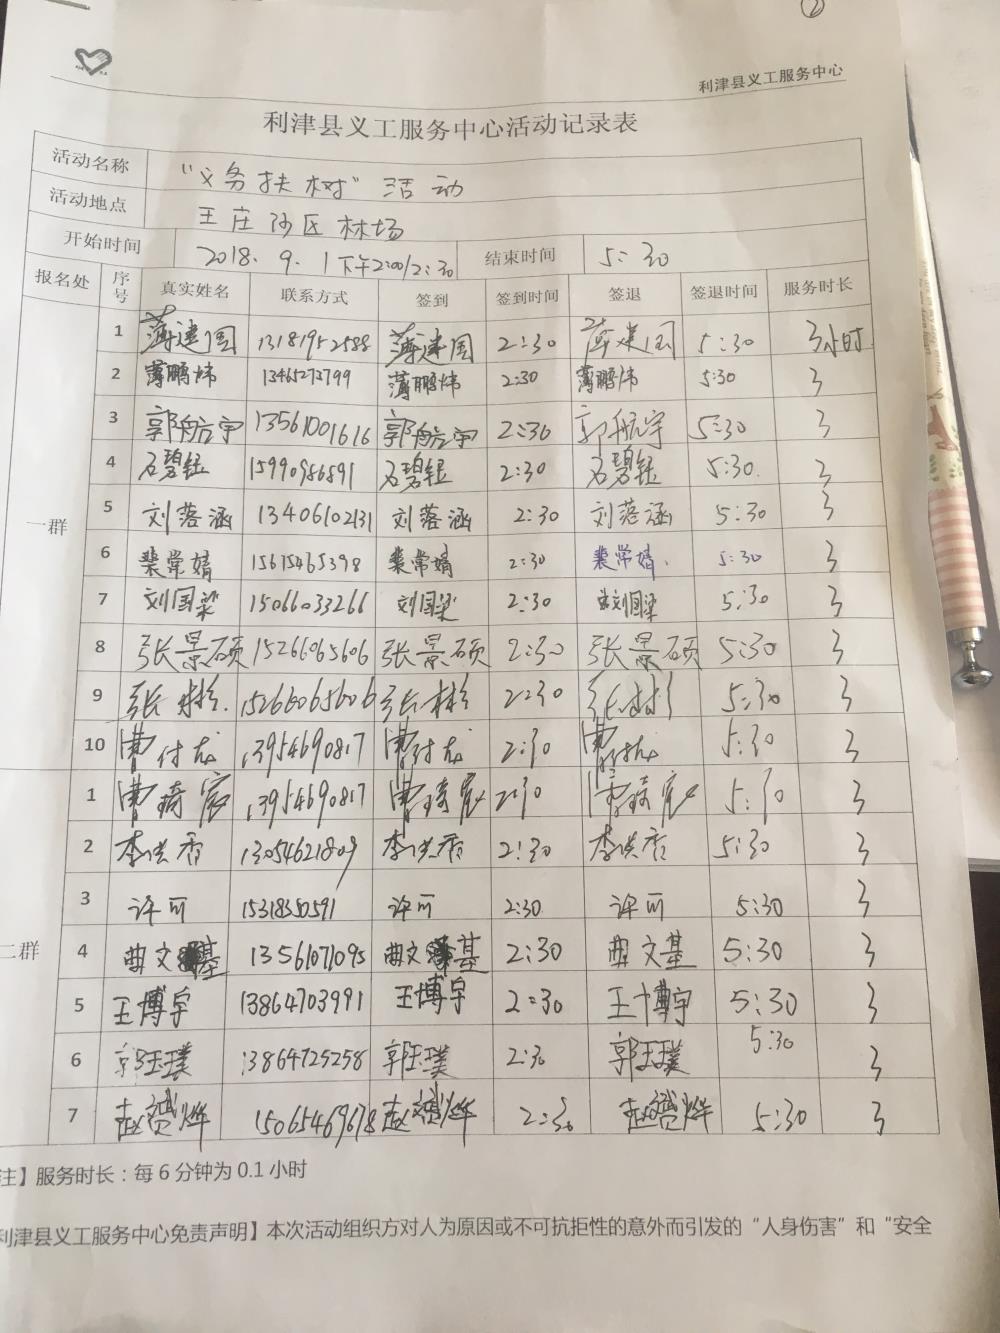 ②
利津县义工服务中心
利津县义工服务中心活动记录表
活动名称 "义务扶树"活动
活动地点 王庄沙区林场
开始时间 2018.9.1下午2:00/2:30 结束时间 5:30
报名处 序号 真实姓名 联系方式 签到 签到时间 签退 签退时间 服务时长
1 薄建国 13181952588 薄建国 2:30 薄建国 5:30 3小时
2 薄鹏炜 13465273799 薄鹏炜 2:30 薄鹏炜 5:30 3
3 郭航宇 13561001616 郭航宇 2:30 郭航宇 5:30 3
4 石碧钰 15990986891 石碧钰 2:30 石碧钰 5:30. 3
一群 5 刘蓉涵 13406102131 刘蓉涵 2:30 刘蓉涵 5:30 3
6 裴常婧 15615465398 裴常婧 2:30 裴常婧. 5:30 3
7 刘国梁 15066033266 刘国梁 2:30 刘国梁 5:30 3
8 张景硕 15266065606 张景硕 2:30 张景硕 5:30 3
9 张彬. 15266065606 张彬 2:30 张彬 5:30 3
10 曹付龙 13954690817 曹付龙 2:30 曹付龙 5:30 3
1 曹琦宸 13954690817 曹琦宸 2:30 曹琦宸 5:30 3
2 李洪香 13054621809 李洪香 2:30 李洪香 5:30 3
3 许可 15318350591 许可 2:30 许可 5:30 3
二群 4 曲文基 13561071095 曲文基 2:30 曲文基 5:30 3
5 王博宇 13864703991 王博宇 2:30 王博宇 5:30 3
6 郭玉璞 13864725258 郭玉璞 2:30 郭玉璞 5:30 3
7 赵赟烨 15065469678 赵赟烨 2:30 赵赟烨 5:30 3
注】服务时长：每6分钟为0.1小时
利津县义工服务中心免责声明】本次活动组织方对人为原因或不可抗拒性的意外而引发的“人身伤害”和“安全